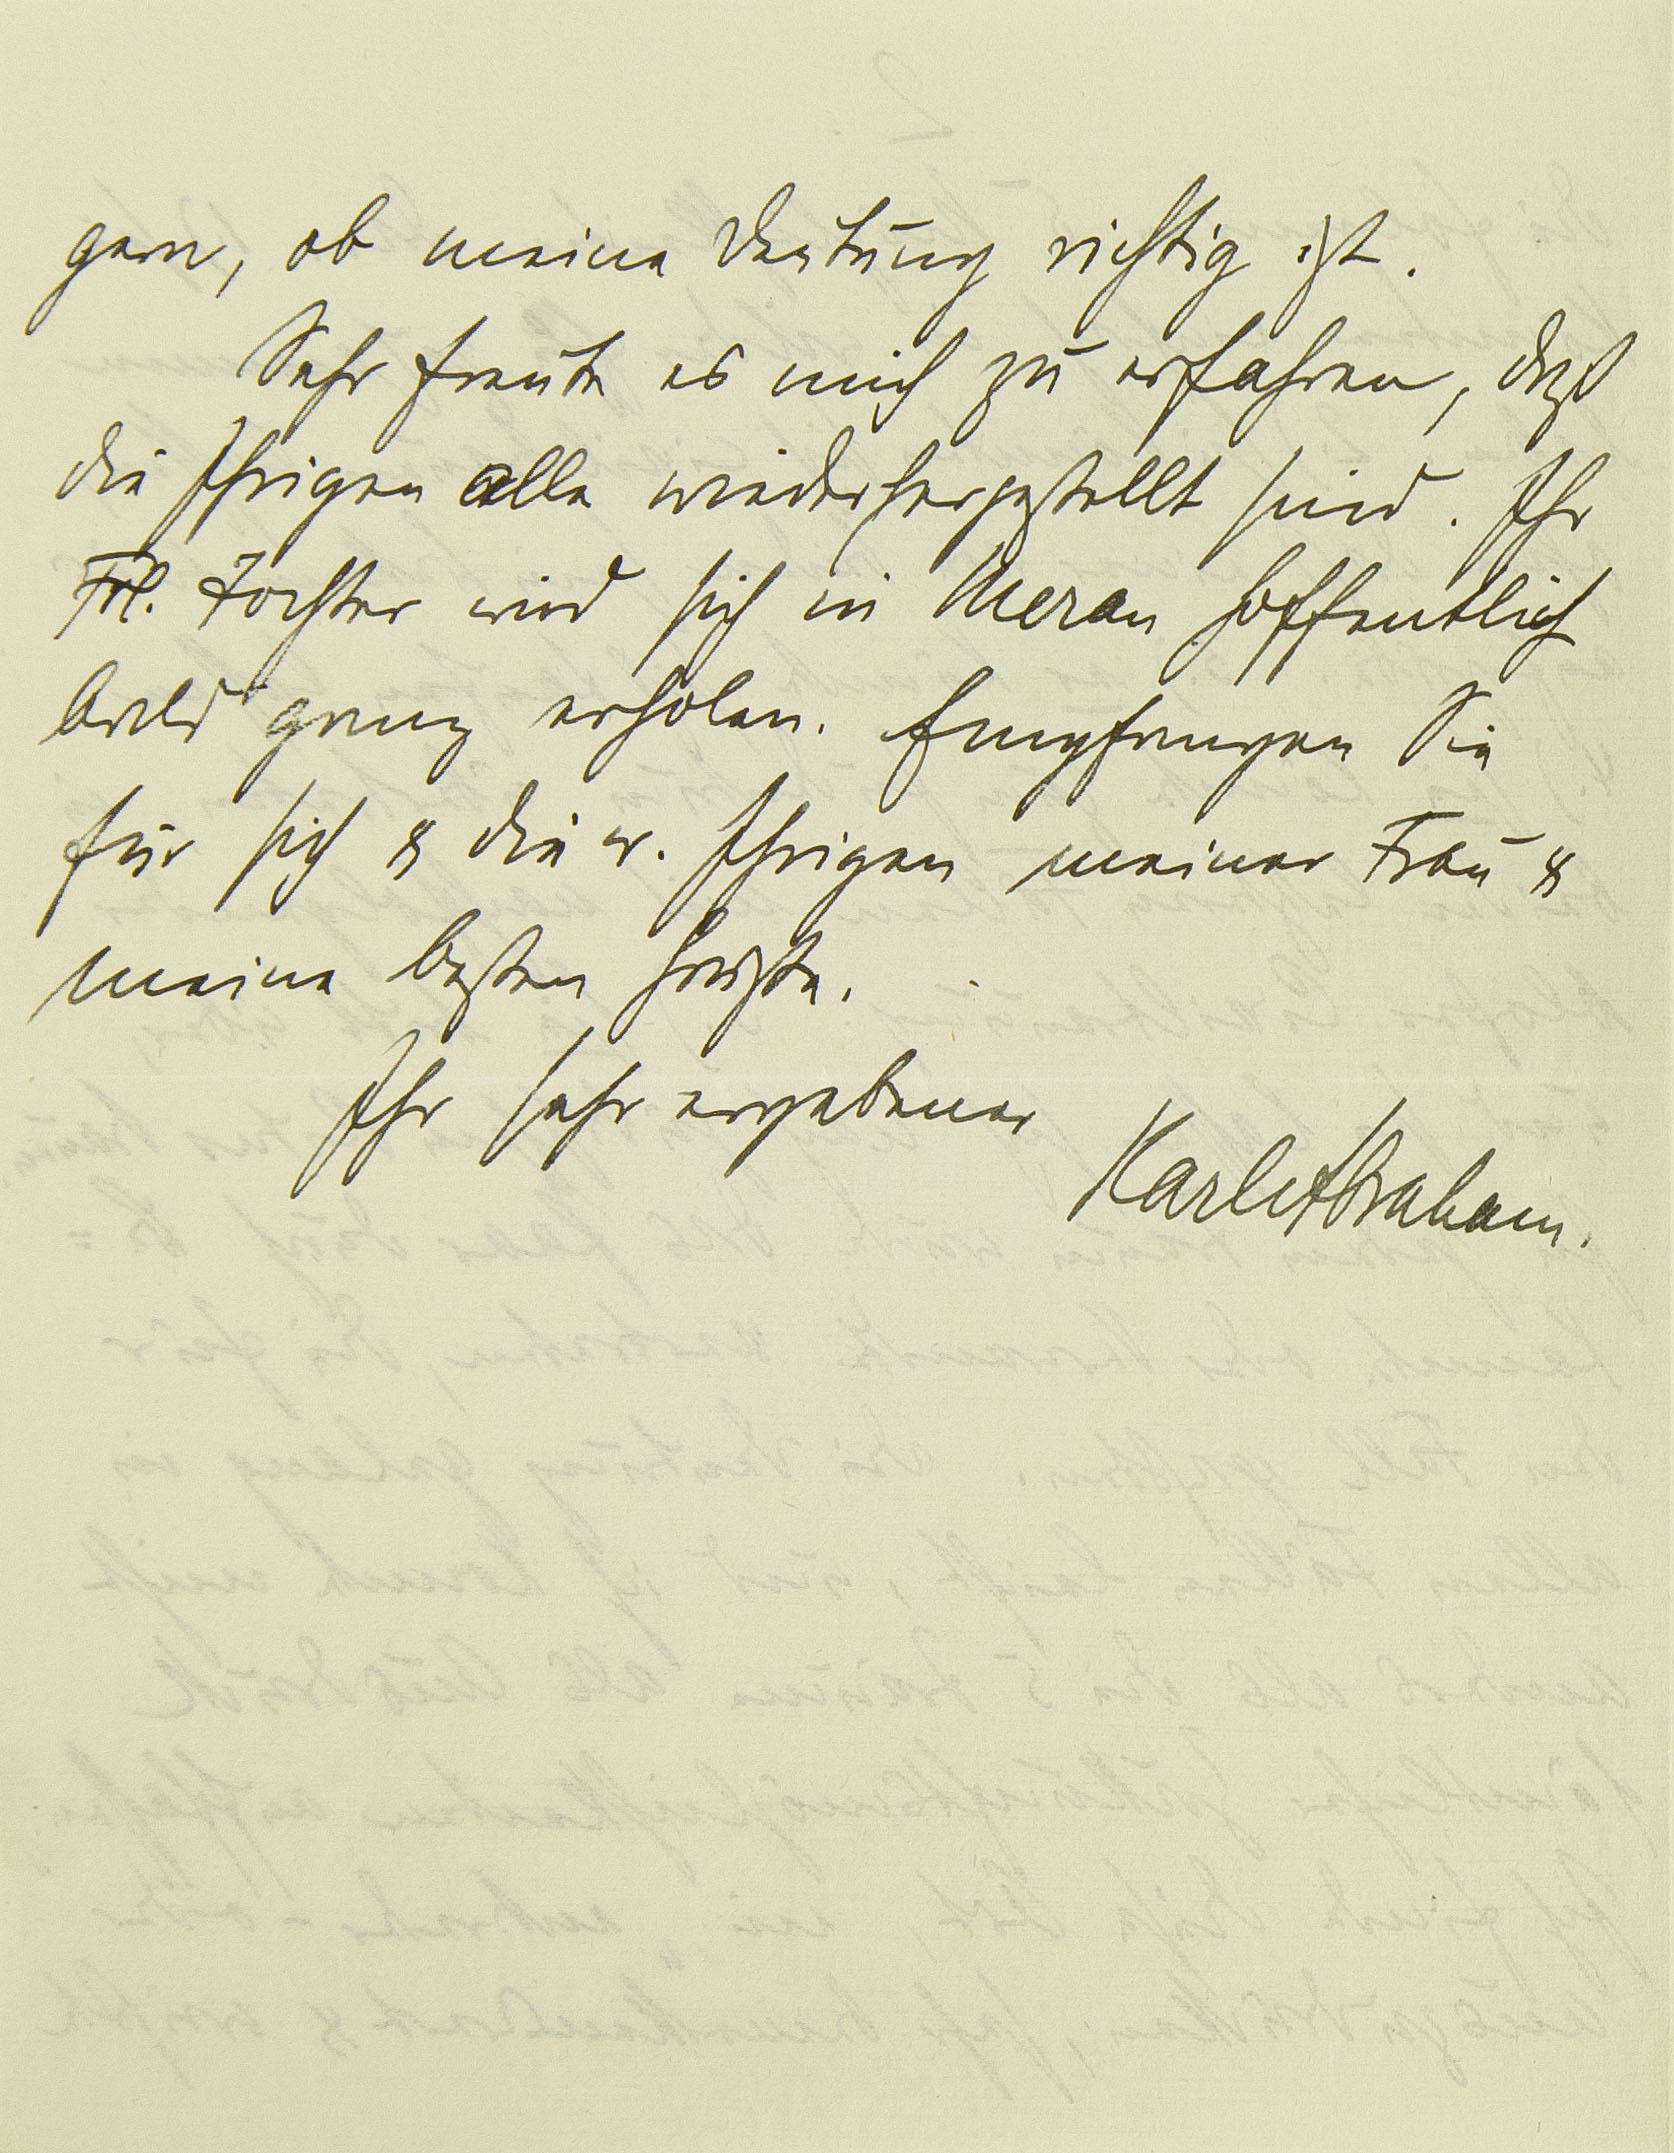 gern, ob meine Deutung richtig ist.
Sehr freute es mich zu erfahren, daß
die Ihrigen alle wiederhergestellt sind. Ihr
Frl. Tochter wird sich in Meran hoffentlich
bald ganz erholen. Empfangen Sie
für sich & die w. Ihrigen meiner Frau &
meine besten Grüße.
Ihr sehr ergebener
Karl Abraham.